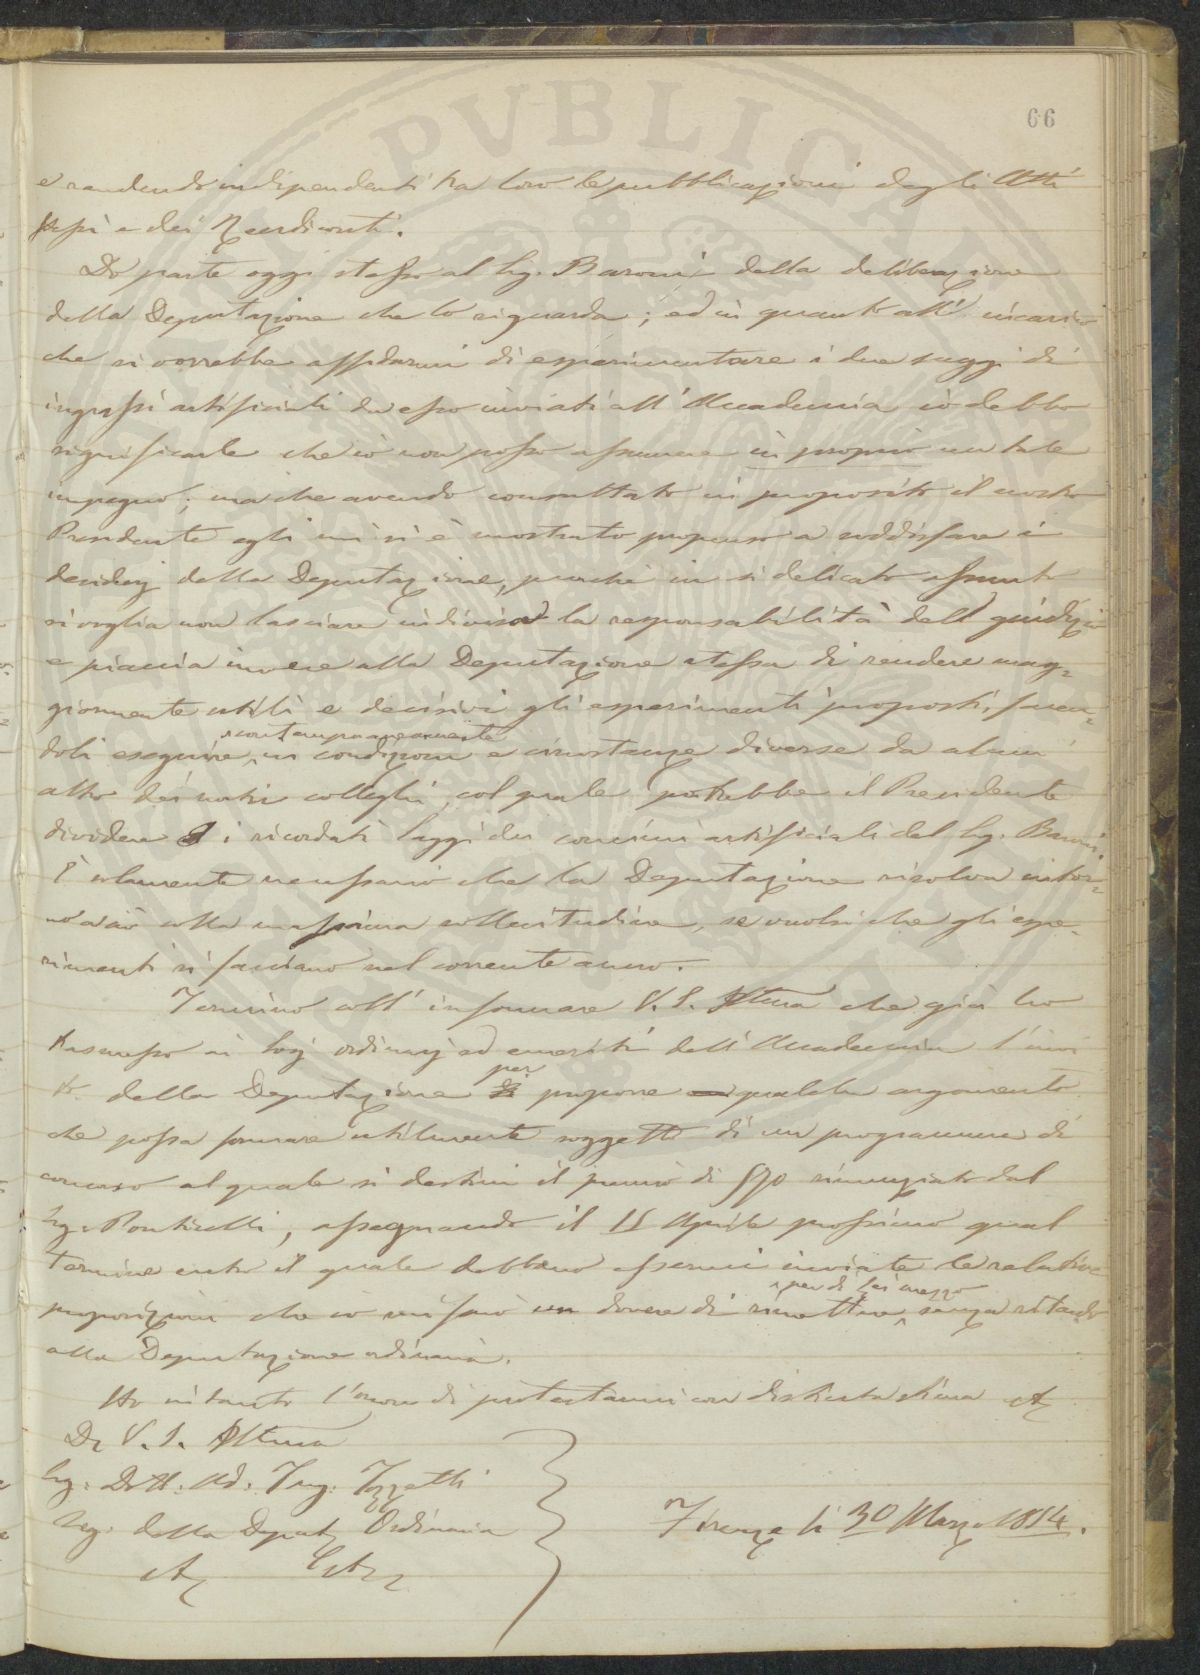 66
e rendendo indipendenti tra loro le pubblicazioni degli Atti
stessi e dei Rendiconti.
Do parte oggi stesso al Sig. Baroni della deliberazione
della Deputazione che lo riguarda; ed in quanto all' incarico
che si vorrebbe affidarmi di esperimentare i due saggi di
ingrassi artificiali da esso inviati all' Accademia io debbo
significarle che io non posso assumere in proprio un tale
impegno; ma che avendo consultato in proposito il nostro
Presidente egli mi si è mostrato propenso a soddisfare i
desiderj della Deputazione, purchè in sì delicato assunto
si voglia non lasciare indivisa la responsabilità del giudizio
e piaccia invece alla Deputazione stessa di rendere mag=
giormente utili e decisivi gli esperimenti proposti, facen=
doli eseguire contemporaneamente in condizioni e circostanze diverse da alcun
altro dei nostri colleghi, col quale potrebbe il Presidente
dividere i ricordati saggi dei concimi artificiali del Sig. Baroni.
È solamente necessario che la Deputazione risolva intor=
no a ciò colla massima sollecitudine, se vuolsi che gli espe=
rimenti si facciano nel corrente anno.
Termino coll' informare V. S. Illma che già ho
trasmesso ai Socj ordinarj ed emeriti dell' Accademia l'invi
to della Deputazione per proporre qualche argomento
che possa formare utilmente soggetto di un programma di
concorso al quale si destini il premio di rinunziato dal
Sig. Ponticelli, assegnando il 15 Aprile prossimo qual
termine entro il quale debbano essermi inviate le relative
proposizioni che io mi farò dovere di rimettere, per di Lei mezzo senza ritardo
alla Deputazione ordinaria.
Ho intanto l'onore di protestarmi con distinta stima
Di V. S. Illma
Sig. Dott. Ad. Targ. Tozzetti
Seg. della Deputaz Ordinaria
Firenze li 30 Marzo 1854.